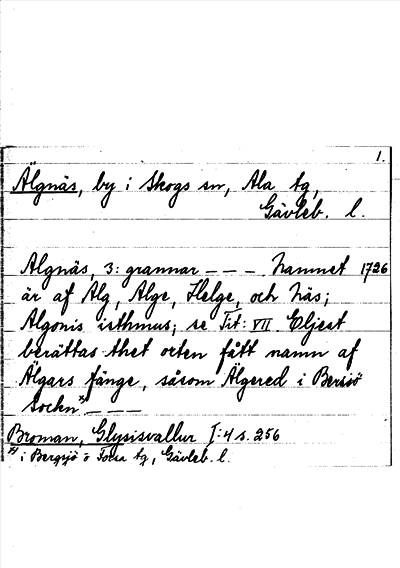 1.
Älgnäs, by i Skogs sn, Ala tg,
Gävleb. l.
Algnäs, 3: grannar – – – . Namnet 1726
är af Alg, Alge, Helge, och Näs;
Algonis isthmus; se Tit: VII. Eljest
berättas thet orten fått namn af
Älgars fänge, såsom Älgered i Bersiö
Sochn*) – – –
Broman, Glysisvallur I:4 s. 256
*) i Bergsjö o Forsa tg, Gävleb. l.